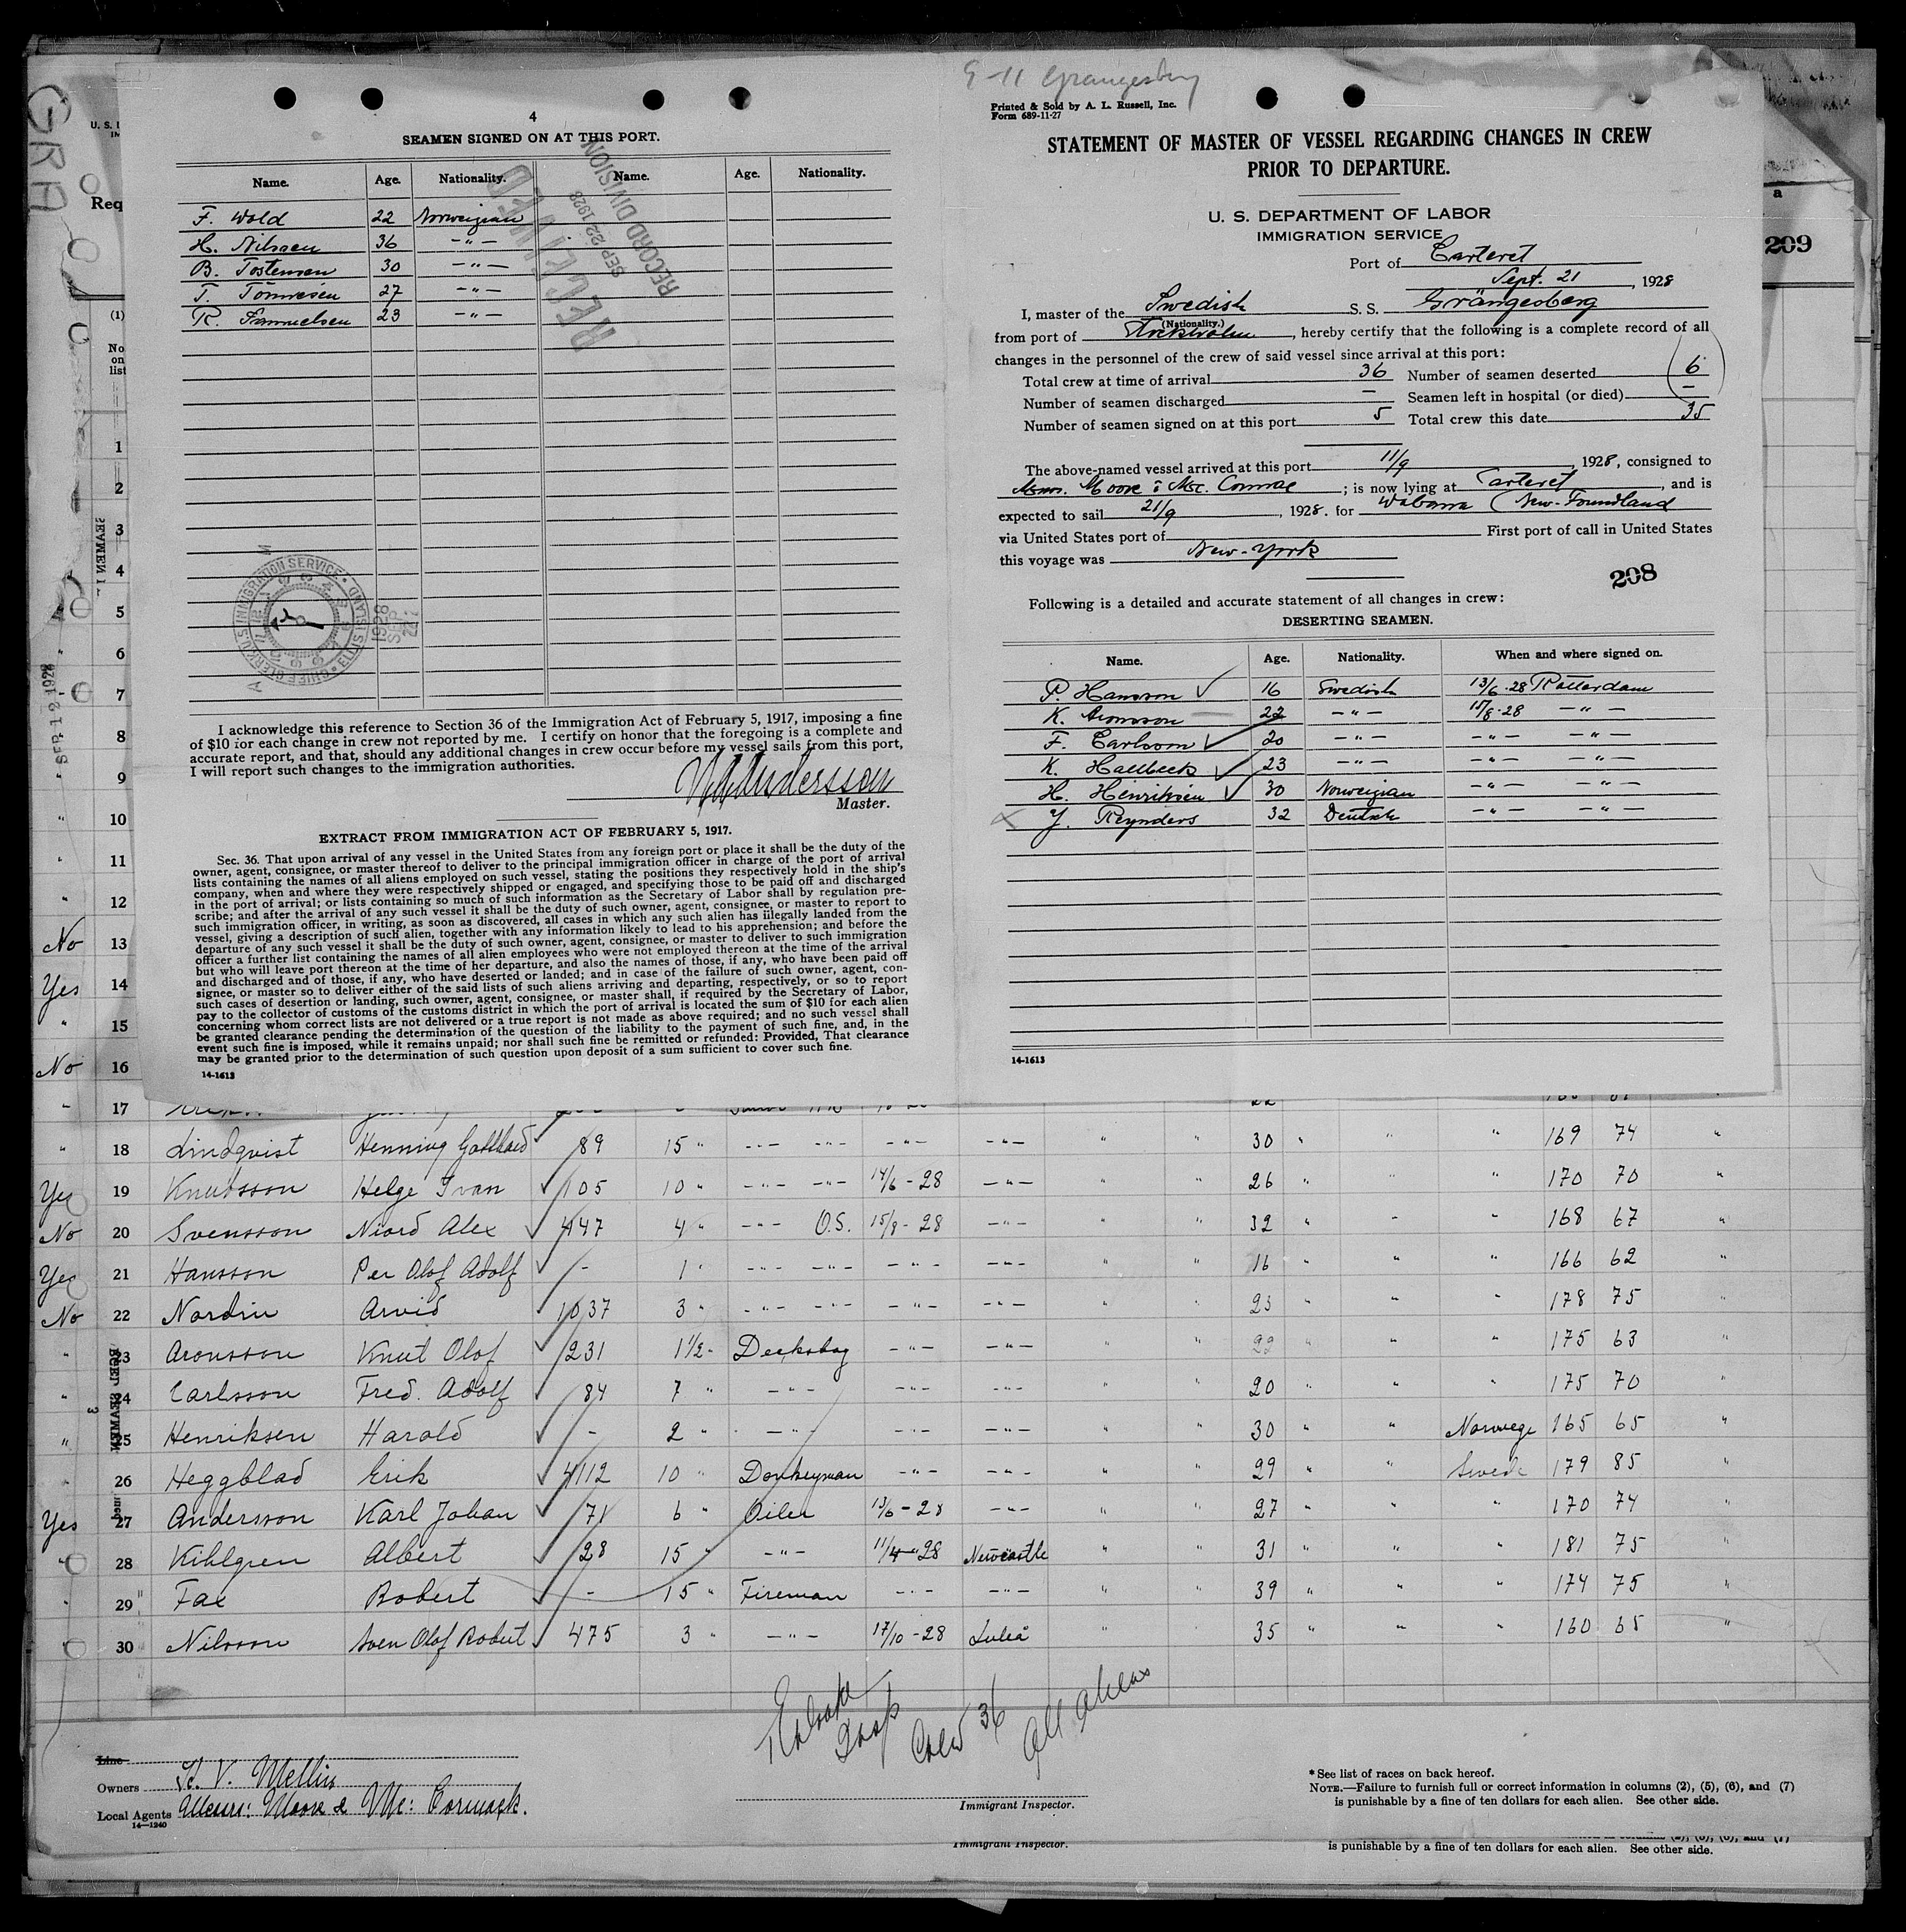 4
SEAMEN SIGNED ON AT THIS PORT.
Name. Age. Nationality. Name. Age. Nationality.
F. Wold 22 Norweigian
H. Nilsen 36 -"-
B. Tostensen 30 -"-
T. Tönnesen 27 -"-
R. Samuelsen 23 -"-
RECEIVED
SEP 22 1928
RECORD DIVISION
CHIEF CLERK U.S. IMMIGRATION SERVICE ELLIS ISLAND
1928 SEP
I acknowledge this reference to Section 36 of the Immigration Act of February 5, 1917, imposing a fine
of $10 for each change in crew not reported by me. I certify on honor that the foregoing is a complete and
accurate report, and that, should any additional changes in crew occur before my vessel sails from this port,
I will report such changes to the immigration authorities.
Andersson
Master.
EXTRACT FROM IMMIGRATION ACT OF FEBRUARY 5, 1917.
Sec. 36. That upon arrival of any vessel in the United States from any foreign port or place it shall be the duty of the
owner, agent, consignee, or master thereof to deliver to the principal immigration officer in charge of the port of arrival
lists containing the names of all aliens employed on such vessel, stating the positions they respectively hold in the ship's
company, when and where they were respectively shipped or engaged, and specifying those to be paid off and discharged
in the port of arrival; or lists containing so much of such information as the Secretary of Labor shall by regulation pre-
scribe; and after the arrival of any such vessel it shall be the duty of such owner, agent, consignee, or master to report to
such immigration officer, in writing, as soon as discovered, all cases in which any such alien has illegally landed from the
vessel, giving a description of such alien, together with any information likely to lead to his apprehension; and before the
departure of any such vessel it shall be the duty of such owner, agent, consignee, or master to deliver to such immigration
officer a further list containing the names of all alien employees who were not employed thereon at the time of the arrival
but who will leave port thereon at the time of her departure, and also the names of those, if any, who have been paid off
and discharged and of those, if any, who have deserted or landed; and in case of the failure of such owner, agent, con-
signee, or master so to deliver either of the said lists of such aliens arriving and departing, respectively, or so to report
such cases of desertion or landing, such owner, agent, consignee, or master shall, if required by the Secretary of Labor,
pay to the collector of customs of the customs district in which the port of arrival is located the sum of $10 for each alien
concerning whom correct lists are not delivered or a true report is not made as above required; and no such vessel shall
be granted clearance pending the determination of the question of the liability to the payment of such fine, and, in the
event such fine is imposed, while it remains unpaid; nor shall such fine be remitted or refunded: Provided, That clearance
may be granted prior to the determination of such question upon deposit of a sum sufficient to cover such fine.
14-1613
9-11 Grangesberg
Printed & Sold by A. L. Russell, Inc.
Form 689-11-27
STATEMENT OF MASTER OF VESSEL REGARDING CHANGES IN CREW
PRIOR TO DEPARTURE.
U. S. DEPARTMENT OF LABOR
IMMIGRATION SERVICE
Port of Carteret
Sept. 21, 1928
I, master of the Swedish S. S. Grängesberg
(Nationality.)
from port of Stockholm, hereby certify that the following is a complete record of all
changes in the personnel of the crew of said vessel since arrival at this port:
Total crew at time of arrival 36 Number of seamen deserted 6
Number of seamen discharged - Seamen left in hospital (or died) -
Number of seamen signed on at this port 5 Total crew this date 35
The above-named vessel arrived at this port 11/9 1928, consigned to
Messrs. Moore & Mc. Cormac; is now lying at Carteret, and is
expected to sail 21/9, 1928. for Wabana (New-Foundland
via United States port of First port of call in United States
this voyage was New-York
208
Following is a detailed and accurate statement of all changes in crew:
DESERTING SEAMEN.
Name. Age. Nationality. When and where signed on.
P. Hansson 16 Swedish 13/6-28 Rotterdam
K. Aronsson 22 -"- 15/8-28 -"-
F. Carlsson 20 -"- -"- -"-
K. Hallbeck 23 -"- -"- -"-
H. Henriksen 30 Norweigian -"- -"-
Y. Reynders 32 Deutsch -"- -"-
14-1613
GRA
U. S.
Req
(1)
No
on
list
a
209
SEP 12 1928
1
2
3
4
5
6
7
8
9
10
11
12
No 13
Yes 14
" 15
No 16
" 17
" 18 Lindqvist Henning Gotthard 89 15 " -"- -"- -"- -"- " " 30 " " " 169 74 "
Yes 19 Knutsson Helge Ivan 105 10 " -"- -"- 14/6-28 -"- " " 26 " " " 170 70 "
No 20 Svensson Niord Alex 447 4 " -"- O.S. 15/8-28 -"- " " 32 " " " 168 67 "
Yes 21 Hansson Per Olof Adolf - 1 " -"- -"- -"- -"- " " 16 " " " 166 62 "
No 22 Nordin Arvid 1037 3 " -"- -"- -"- -"- " " 23 " " " 178 75 "
" 23 Aronsson Knut Olof 231 1 1/2 " Decksboy -"- -"- " " 22 " " " 175 63 "
" 24 Carlsson Fred. Adolf 84 7 " -"- -"- -"- " " 20 " " " 175 70 "
" 25 Henriksen Harald - 2 " -"- -"- -"- " " 30 " " Norwege 165 65 "
" 26 Heggblad Erik 4112 10 " Donkeyman -"- -"- " " 29 " " Swede 179 85 "
Yes 27 Andersson Karl Johan 71 6 " Oiler 13/6-28 -"- " " 27 " " " 170 74 "
" 28 Kihlgren Albert 28 15 " -"- 11/4-28 Newcastle " " 31 " " " 181 75 "
" 29 Fax Robert - 15 " Fireman -"- -"- " " 39 " " " 174 75 "
" 30 Nilsson Sven Olof Robert 475 3 " -"- 17/10-28 Luleå " " 35 " " " 160 65 "
Crew 36 All Aliens
Line
Owners V. Mellin
Local Agents Messrs: Moore & Mc: Cormack.
14-1240
Immigrant Inspector.
*See list of races on back hereof.
NOTE.—Failure to furnish full or correct information in columns (2), (5), (6), and (7)
is punishable by a fine of ten dollars for each alien. See other side.
Immigrant Inspector.
is punishable by a fine of ten dollars for each alien. See other side.